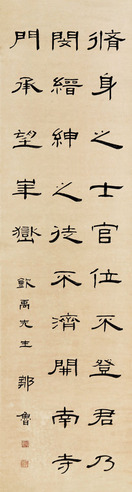 脩身之士官位不登君乃
閔縉紳之徒不濟開南寺
門承望崋嶽
禹先生 鄒魯